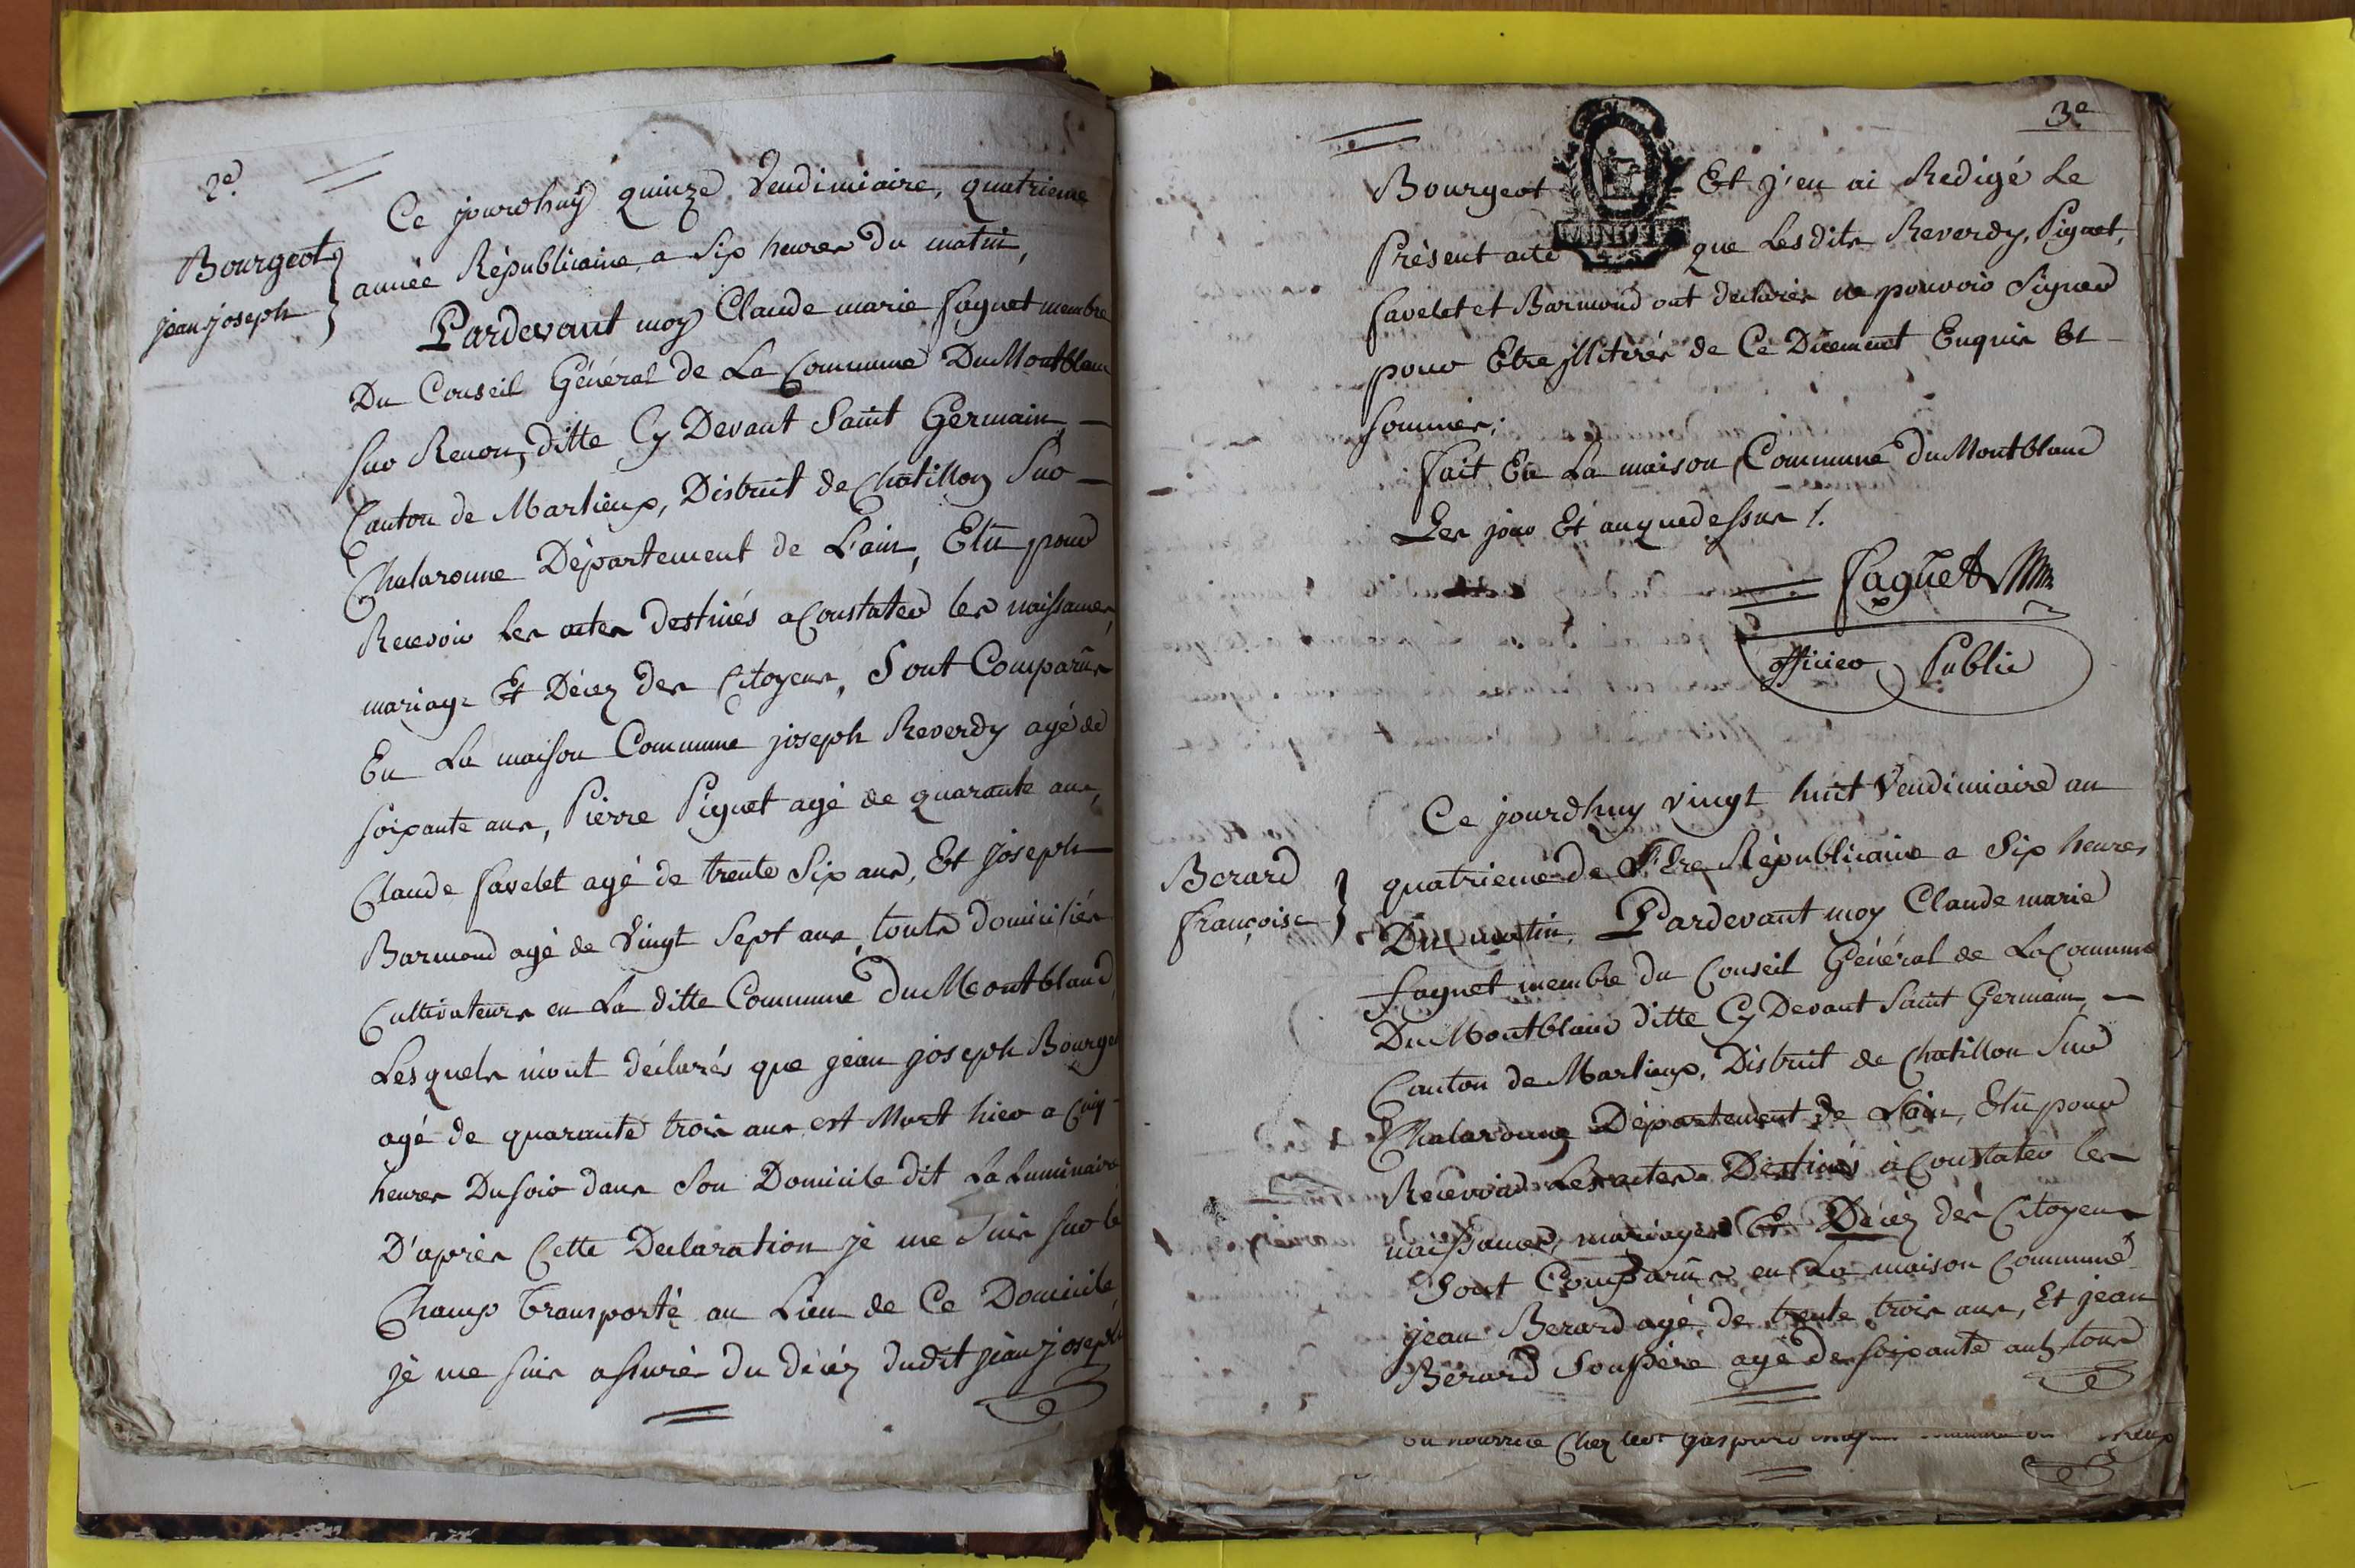 2e.
Bourgeot
jean joseph
Ce jourdhuy quinze Vendimiaire, quatrieme
année Républicaine, a Six heures du matin,
Pardevant moy Claude marie faguet membre
Du Conseil Général de La Commune Du Montblanc
sur Renon, ditte Cy Devant Saint Germain, —
Canton de Marlieux, District de Chatillon Sur —
Chalaronne Département de L'ain, Elu pour
Recevoir Les actes destinés a Constater les naissances,
mariage Et Décez des Citoyens, Sont Comparûs
En La maison Commune joseph Reverdy agé de
soixante ans, Pierre Piguet agé de quarante ans,
Claude favelet agé de trente Six ans, Et joseph
Barmond agé de Vingt Sept ans, touts domiciliés
Cultivateurs en La ditte Commune du Montblanc,
Lesquels m'ont déclarés que jéan joseph Bourgeot
agé de quarante trois ans est Mort hier a Cinq
heures Du soir dans Son Domicile dit La Luminaire
D'après Cette Declaration je me Suis sur le
Champ Transporté au Lieu de Ce Domicile,
jé me suis assuré du décéz dudit jéan joseph
3e
Bourgeot Et j'en ai Redigé Le
Présent acte que Lesdits Reverdy, Piguet,
favelet et Barmond ont declarés ne pouvoir Signer
pour Etre jllitérés de Ce Duement Enquis Et —
sommés;
fait En La maison Commune du Montblanc
Les jour Et an que dessus /.
faguet
officier Public
MINUTE
Berard
françoise
Ce jourdhuy vingt huit Vendimiaire an
quatrieme de L'Ere Républicaine a Six heures
Du matin, Pardevant moy Claude marie
faguet membre du Conseil Général de La Commune
Du Montblanc ditte Cy Devant Saint Germain, —
Canton de Marlieux, District de Chatillon Sur
Chalaronne Département de L'ain, Elu pour
Recevoir Les actes Destinés à Constater les
naissances, mariages Et Décéz des Citoyens
Sont Comparûs en La maison Commune
jean Berard agé de trente trois ans, Et jean
Bérard Son Pére agé de soixante ans, tous
en nourrice Chez